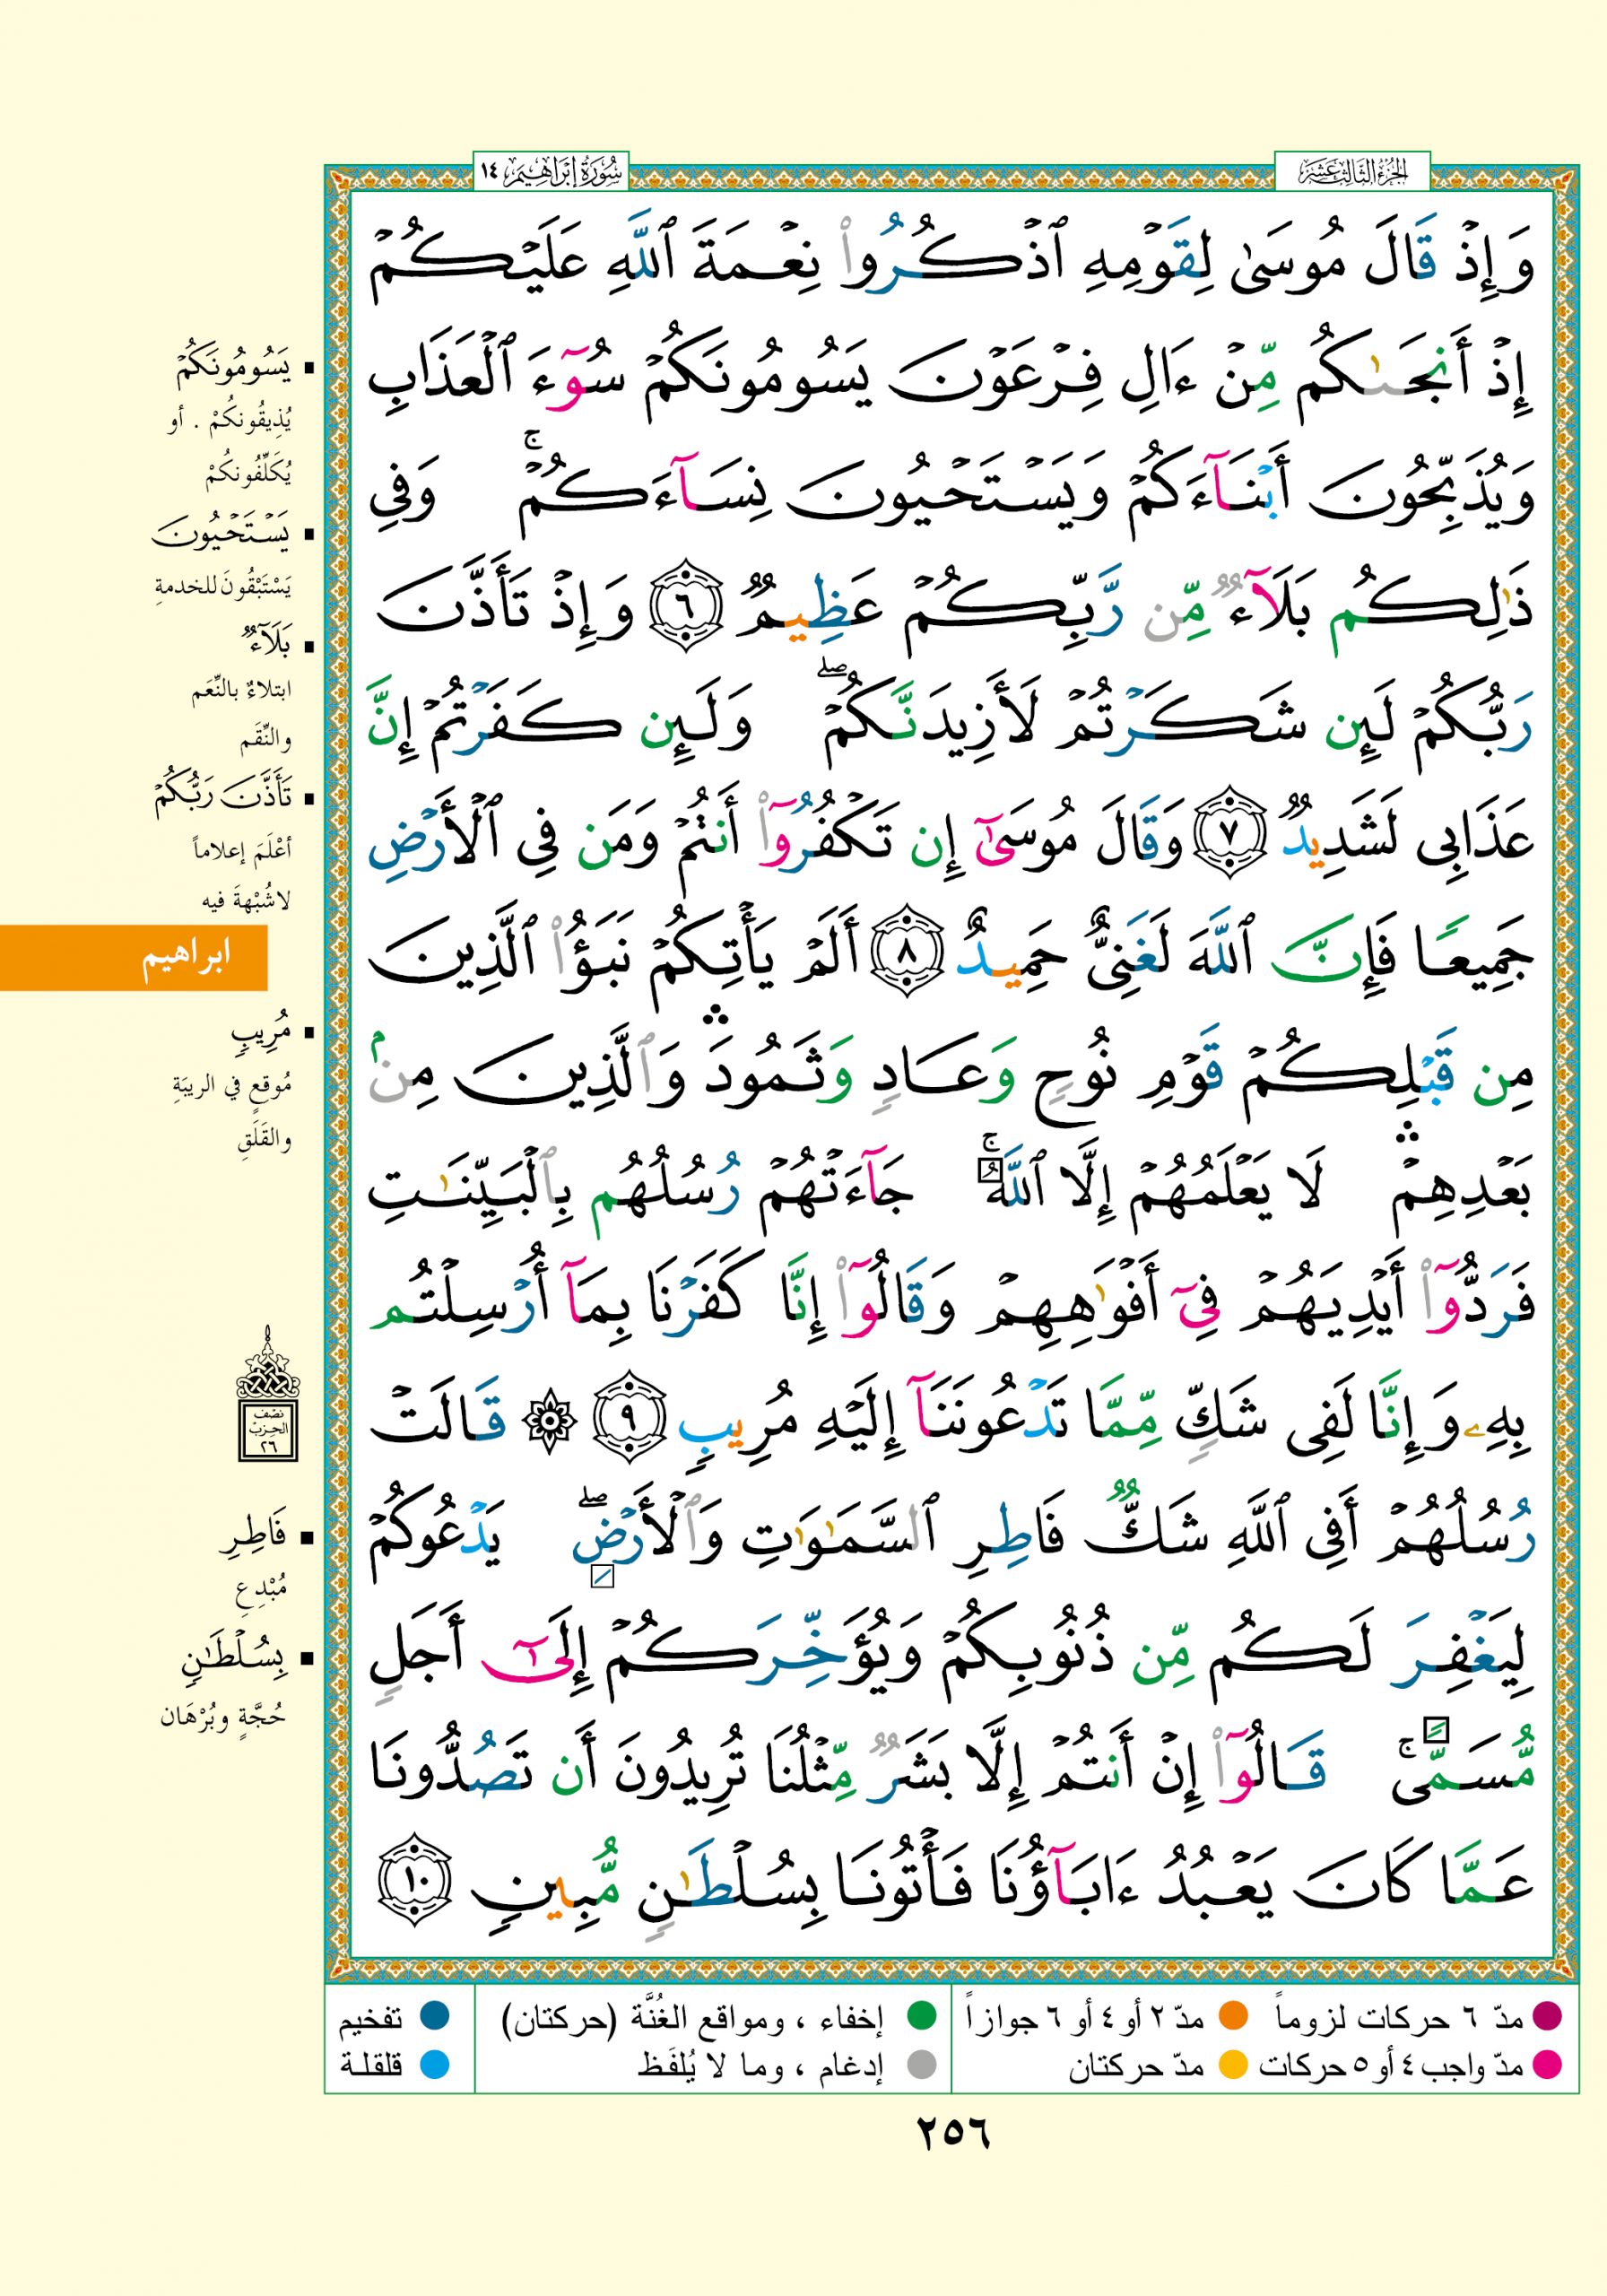 الجزء الثالث عشر
سورة إبراهيم ١٤
وَإِذۡ قَالَ مُوسَىٰ لِقَوۡمِهِ ٱذۡكُرُواْ نِعۡمَةَ ٱللَّهِ عَلَيۡكُمۡ
إِذۡ أَنجَىٰكُم مِّنۡ ءَالِ فِرۡعَوۡنَ يَسُومُونَكُمۡ سُوٓءَ ٱلۡعَذَابِ
وَيُذَبِّحُونَ أَبۡنَآءَكُمۡ وَيَسۡتَحۡيُونَ نِسَآءَكُمۡۚ وَفِي
ذَٰلِكُم بَلَآءٞ مِّن رَّبِّكُمۡ عَظِيمٞ ٦ وَإِذۡ تَأَذَّنَ
رَبُّكُمۡ لَئِن شَكَرۡتُمۡ لَأَزِيدَنَّكُمۡۖ وَلَئِن كَفَرۡتُمۡ إِنَّ
عَذَابِي لَشَدِيدٞ ٧ وَقَالَ مُوسَىٰٓ إِن تَكۡفُرُوٓاْ أَنتُمۡ وَمَن فِي ٱلۡأَرۡضِ
جَمِيعٗا فَإِنَّ ٱللَّهَ لَغَنِيٌّ حَمِيدٌ ٨ أَلَمۡ يَأۡتِكُمۡ نَبَؤُاْ ٱلَّذِينَ
مِن قَبۡلِكُمۡ قَوۡمِ نُوحٖ وَعَادٖ وَثَمُودَۛ وَٱلَّذِينَ مِنۢ
بَعۡدِهِمۡۛ لَا يَعۡلَمُهُمۡ إِلَّا ٱللَّهُۚ جَآءَتۡهُمۡ رُسُلُهُم بِٱلۡبَيِّنَٰتِ
فَرَدُّوٓاْ أَيۡدِيَهُمۡ فِيٓ أَفۡوَٰهِهِمۡ وَقَالُوٓاْ إِنَّا كَفَرۡنَا بِمَآ أُرۡسِلۡتُم
بِهِۦ وَإِنَّا لَفِي شَكّٖ مِّمَّا تَدۡعُونَنَآ إِلَيۡهِ مُرِيبٖ ٩ ۞ قَالَتۡ
رُسُلُهُمۡ أَفِي ٱللَّهِ شَكّٞ فَاطِرِ ٱلسَّمَٰوَٰتِ وَٱلۡأَرۡضِۖ يَدۡعُوكُمۡ
لِيَغۡفِرَ لَكُم مِّن ذُنُوبِكُمۡ وَيُؤَخِّرَكُمۡ إِلَىٰٓ أَجَلٖ
مُّسَمّٗىۚ قَالُوٓاْ إِنۡ أَنتُمۡ إِلَّا بَشَرٞ مِّثۡلُنَا تُرِيدُونَ أَن تَصُدُّونَا
عَمَّا كَانَ يَعۡبُدُ ءَابَآؤُنَا فَأۡتُونَا بِسُلۡطَٰنٖ مُّبِينٖ ١٠
يَسُومُونَكُمۡ
يُذِيقُونكُمْ . أو
يُكَلِّفُونكُمْ
يَسۡتَحۡيُونَ
يَسْتَبْقُونَ للخدمةِ
بَلَآءٞ
ابتلاءٌ بالنِّعَم
والنِّقَم
تَأَذَّنَ رَبُّكُمۡ
أعْلَمَ إعلاماً
لاشُبْهةَ فيه
ابراهيم
مُرِيبٖ
مُوقعٍ في الريبَةِ
والقَلَقِ
نصف
الحزب
٢٦
فَاطِرِ
مُبْدِعِ
بِسُلۡطَٰنٖ
حُجَّةٍ وبُرْهَان
مدّ ٦ حركات لزوماً مدّ ٢ أو ٤ أو ٦ جوازاً إخفاء ، ومواقع الغُنَّة (حركتان) تفخيم
مدّ واجب ٤ أو ٥ حركات مدّ حركتان إدغام ، وما لا يُلفَظ قلقلة
٢٥٦